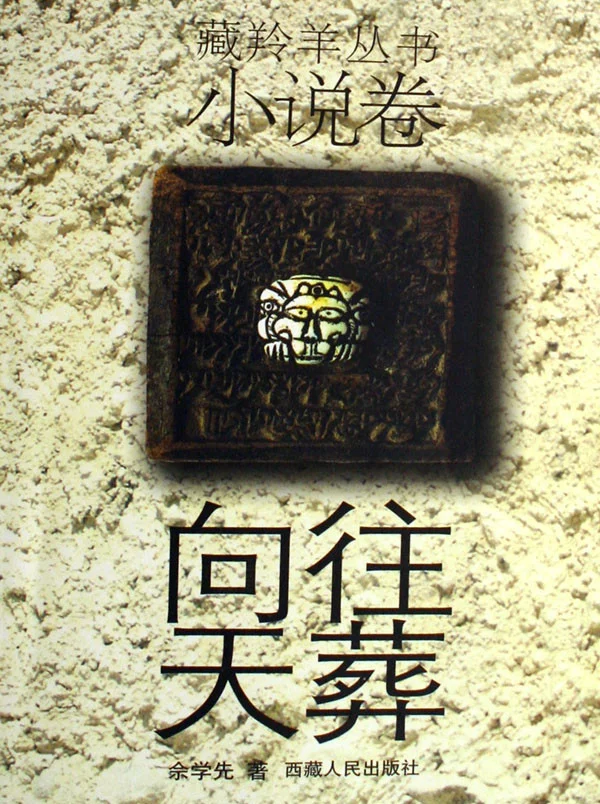 藏羚羊丛书
小说卷
向往
天葬
佘学先 著 西藏人民出版社